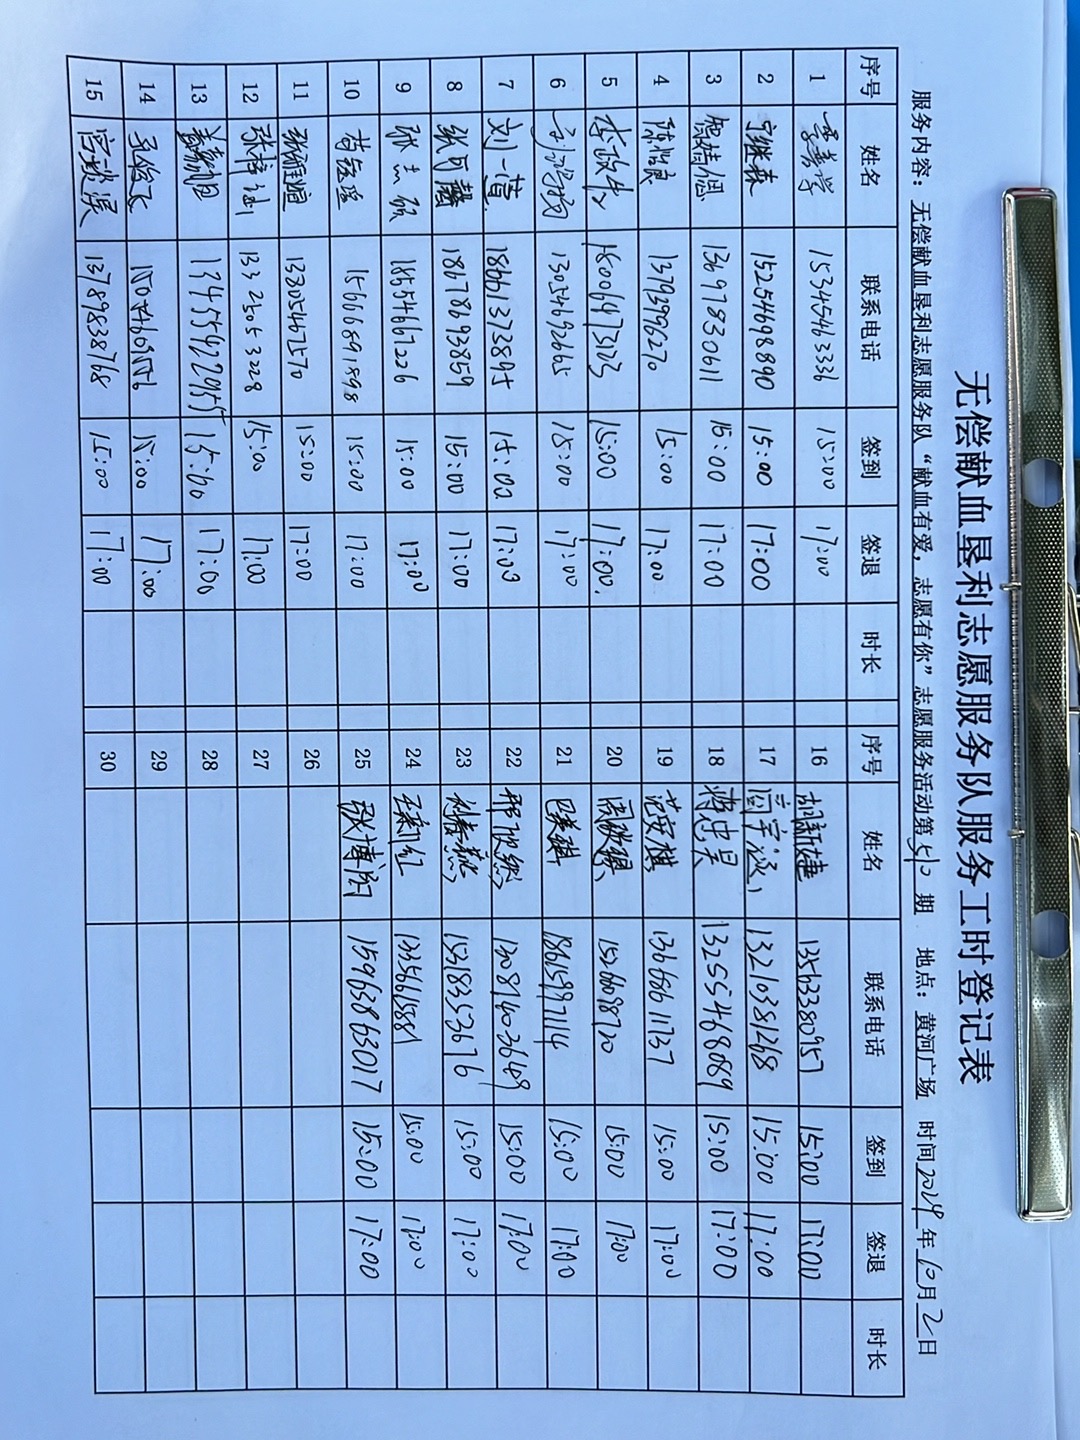 无偿献血垦利志愿服务队服务工时登记表
服务内容：无偿献血垦利志愿服务队“献血有爱，志愿有你”志愿服务活动第510期 地点：黄河广场 时间2024年10月2日
序号 姓名 联系电话 签到 签退 时长 序号 姓名 联系电话 签到 签退 时长
1 15345463336 15:00 17:00 16 胡新建 13563380957 15:00 17:00
2 宁继森 15254698890 15:00 17:00 17 闫宇涵 13210381268 15:00 17:00
3 13697830611 15:00 17:00 18 蒋忠昊 13255468089 15:00 17:00
4 陈怡良 13793996270 15:00 17:00 19 范安祺 13668611737 15:00 17:00
5 李政牛 18006473123 15:00 17:00. 20 15266098720 15:00 17:00
6 13034692665 15:00 17:00 21 18615997114 15:00 17:00
7 刘一萱 18661373895 15:00 17:00 22 邢欣然 15:00 17:00
8 张可馨 18678693859 15:00 17:00 23 利春燕 15318353676 15:00 17:00
9 张志硕 18554667226 15:00 17:00 24 王新红 13356615881 15:00 17:00
10 15666891898 15:00 17:00 25 张博阳 15963863017 15:00 17:00
11 张雅娟 13305467570 15:00 17:00 26
12 张梓 13325053228 15:00 17:00 27
13 15:00 17:00 28
14 15:00 17:00 29
15 宫琰淏 13789838768 15:00 17:00 30